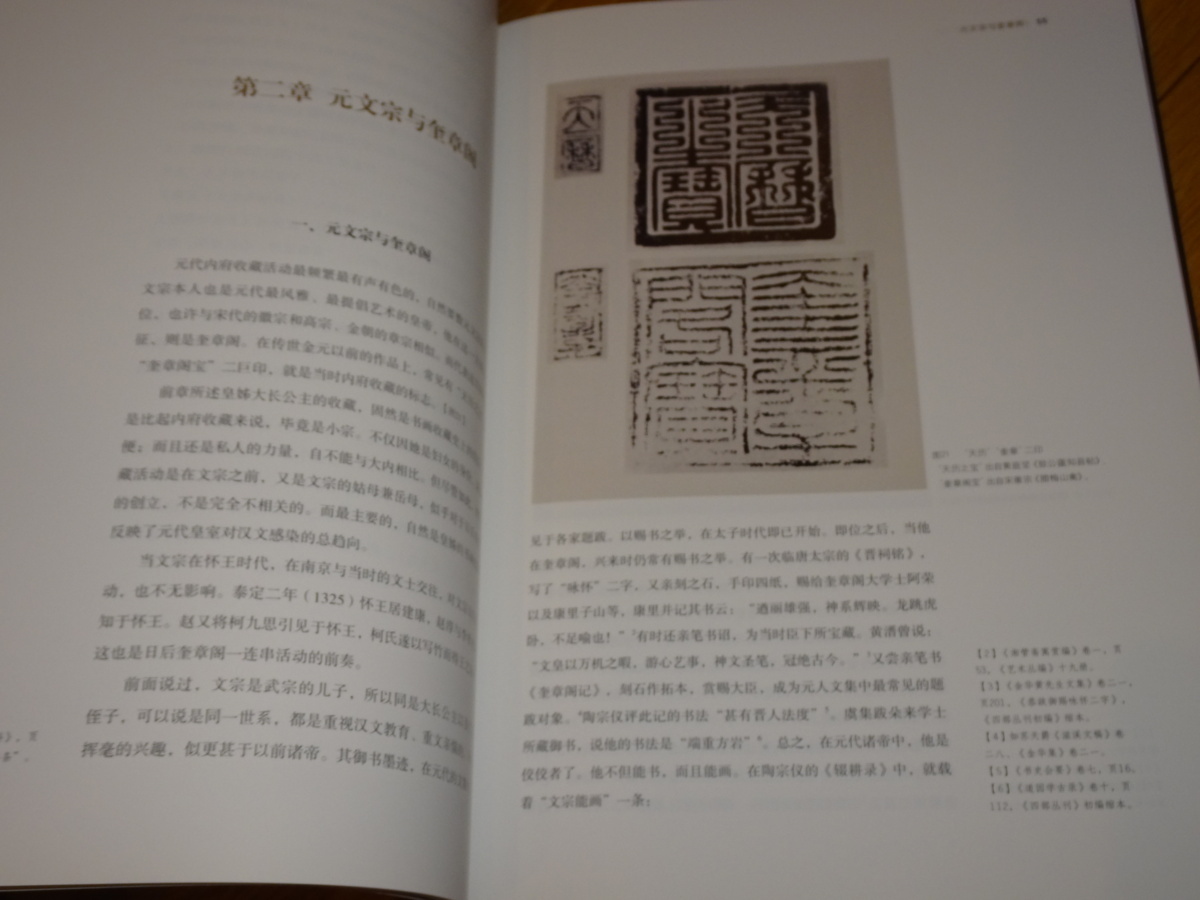 第二章 元文宗与奎章阁
一、元文宗与奎章阁
元代内府收藏活动最频繁最有声有色的，自然
文宗本人也是元代最风雅、最提倡艺术的皇帝，他在
位，也许与宋代的徽宗和高宗、金朝的章宗相似。
征，则是奎章阁。在传世金元以前的作品上，常见有“
“奎章阁宝”二巨印，就是当时内府收藏的标志。
前章所述皇姊大长公主的收藏，固然是书画收藏史上
是比起内府收藏来说，毕竟是小宗。不仅因她是妇女的身份，
便；而且还是私人的力量，自不能与大内相比。但尽管如此，
藏活动是在文宗之前，又是文宗的姑母兼岳母，似乎对
的创立，不是完全不相关的。而最主要的，自然是
反映了元代皇室对汉文感染的总趋向。
当文宗在怀王时代，在南京与当时的文士交往，对
动，也不无影响。泰定二年（1325）怀王居建康，
知于怀王。赵又将柯九思引见于怀王，柯氏遂以写竹
这也是日后奎章阁一连串活动的前奏。
前面说过，文宗是武宗的儿子，所以同是大长公主
侄子，可以说是同一世系，都是重视汉文教育、重文
挥毫的兴趣，似更甚于以前诸帝。其御书墨迹，在元代
元文宗与奎章阁
天历
天历之宝
奎章
奎章阁宝
“天历”“奎章”二印
见于各家题跋。以赐书之举，在太子时代即已开始。即位之后，当他
在奎章阁，兴来时仍常有赐书之举。有一次临唐太宗的《晋祠铭》，
写了“咏怀”二字，又亲刻之石，手印四纸，赐给奎章阁大学士阿荣
以及康里子山等，康里并记其书云：“遒丽雄强，神系辉映。龙跳虎
卧，不足喻也！”³有时还亲笔书诏，为当时臣下所宝藏。黄溍曾说：
“文皇以万机之暇，游心艺事，神文圣笔，冠绝古今。”又尝亲笔书
《奎章阁记》，刻石作拓本，赏赐大臣，成为元人文集中最常见的题
跋对象。⁴陶宗仪评此记的书法“甚有晋人法度”⁵。虞集跋朵来学士
所藏御书，说他的书法是“端重方岩”⁶。总之，在元代诸帝中，他是
佼佼者了。他不但能书，而且能画。在陶宗仪的《辍耕录》中，就载
着“文宗能画”一条：
卷一，页
53，《艺术丛编》十九册。
【3】《金华黄先生文集》卷二一，
页201，《恭跋御赐咏怀二字》，
《四部丛刊初编》缩本。
【4】如苏天爵《滋溪文稿》卷
二八，《金华集》卷二一。
【5】《书史会要》卷七，页10。
【6】《道园学古录》卷十，页
112，《四部丛刊》初编缩本。